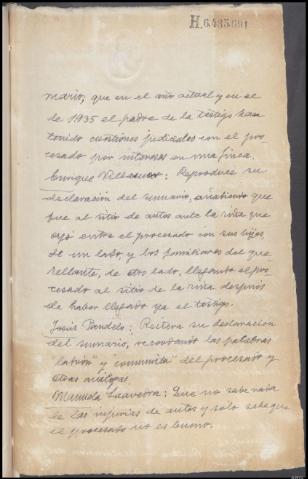 H.6485691
mario, que en el año actual y en el
de 1935 el padre de la testigo han
tenido cuestiones judiciales con el pro-
cesado por intereses en una finca.
Enrique Villasuso: Reproduce su
declaración del sumario, añadiendo que
fue al sitio de autos ante la riña que
oyó entre el procesado con sus hijos
de un lado, y los familiares del que-
rellante, de otro lado, llegando el pro-
cesado al sitio de la riña después
de haber llegado ya el testigo.
Jesús Pandelo: Reitera su declaración
del sumario, recordando las palabras
"ladrón" y "comunista" del procesado y
otras análogas.
Manuela Saavedra: Que no sabe nada
de las injurias de autos y solo sabe que
el procesado no es bueno.